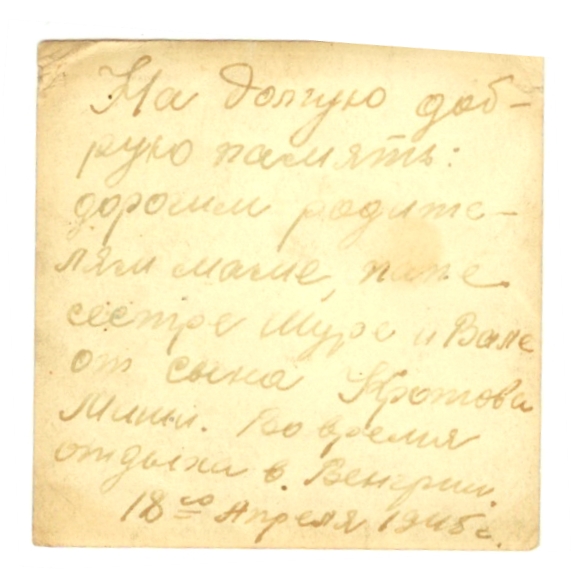 На долгую доб-
рую память:
дорогим родите-
лям маме, папе
сестре Шуре и Вале
от сына Кротова
Миши. Во время
отдыха в. Венгрии.
18го Апреля 1945 г.